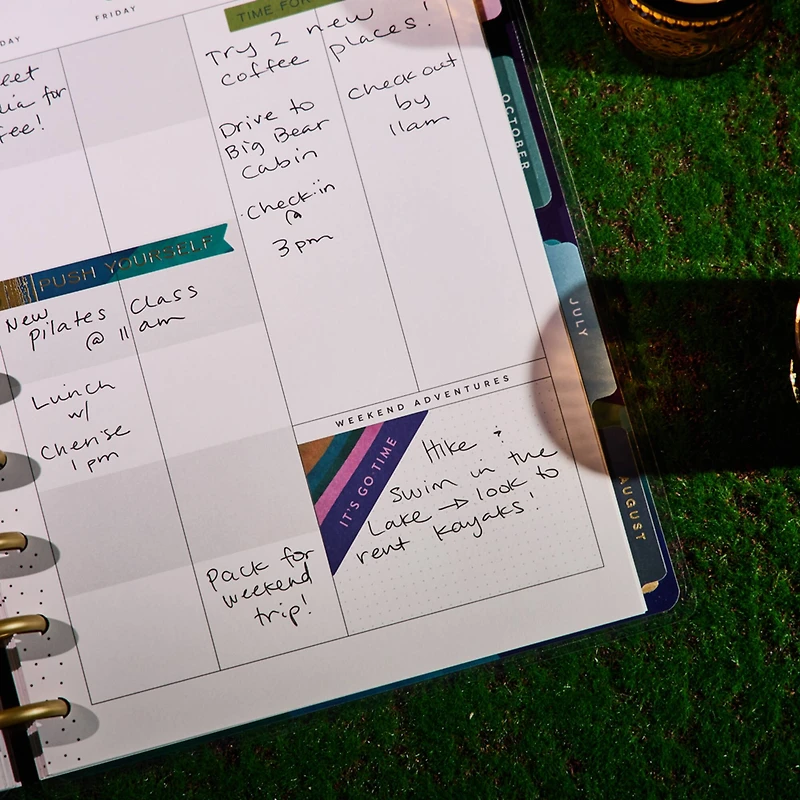 FRIDAY
TIME FOR
Try 2 new places!
coffee
Drive to
Big Bear
Cabin
check in
@
3pm
check out
by
11am
PUSH YOURSELF
New
Pilates Class
@ 11 am
Lunch
w/
Cherise
1 pm
Pack for
weekend
trip!
WEEKEND ADVENTURES
IT'S GO TIME
Hike &
Swim in the
Lake → look to
rent kayaks!
OCTOBER
JULY
AUGUST